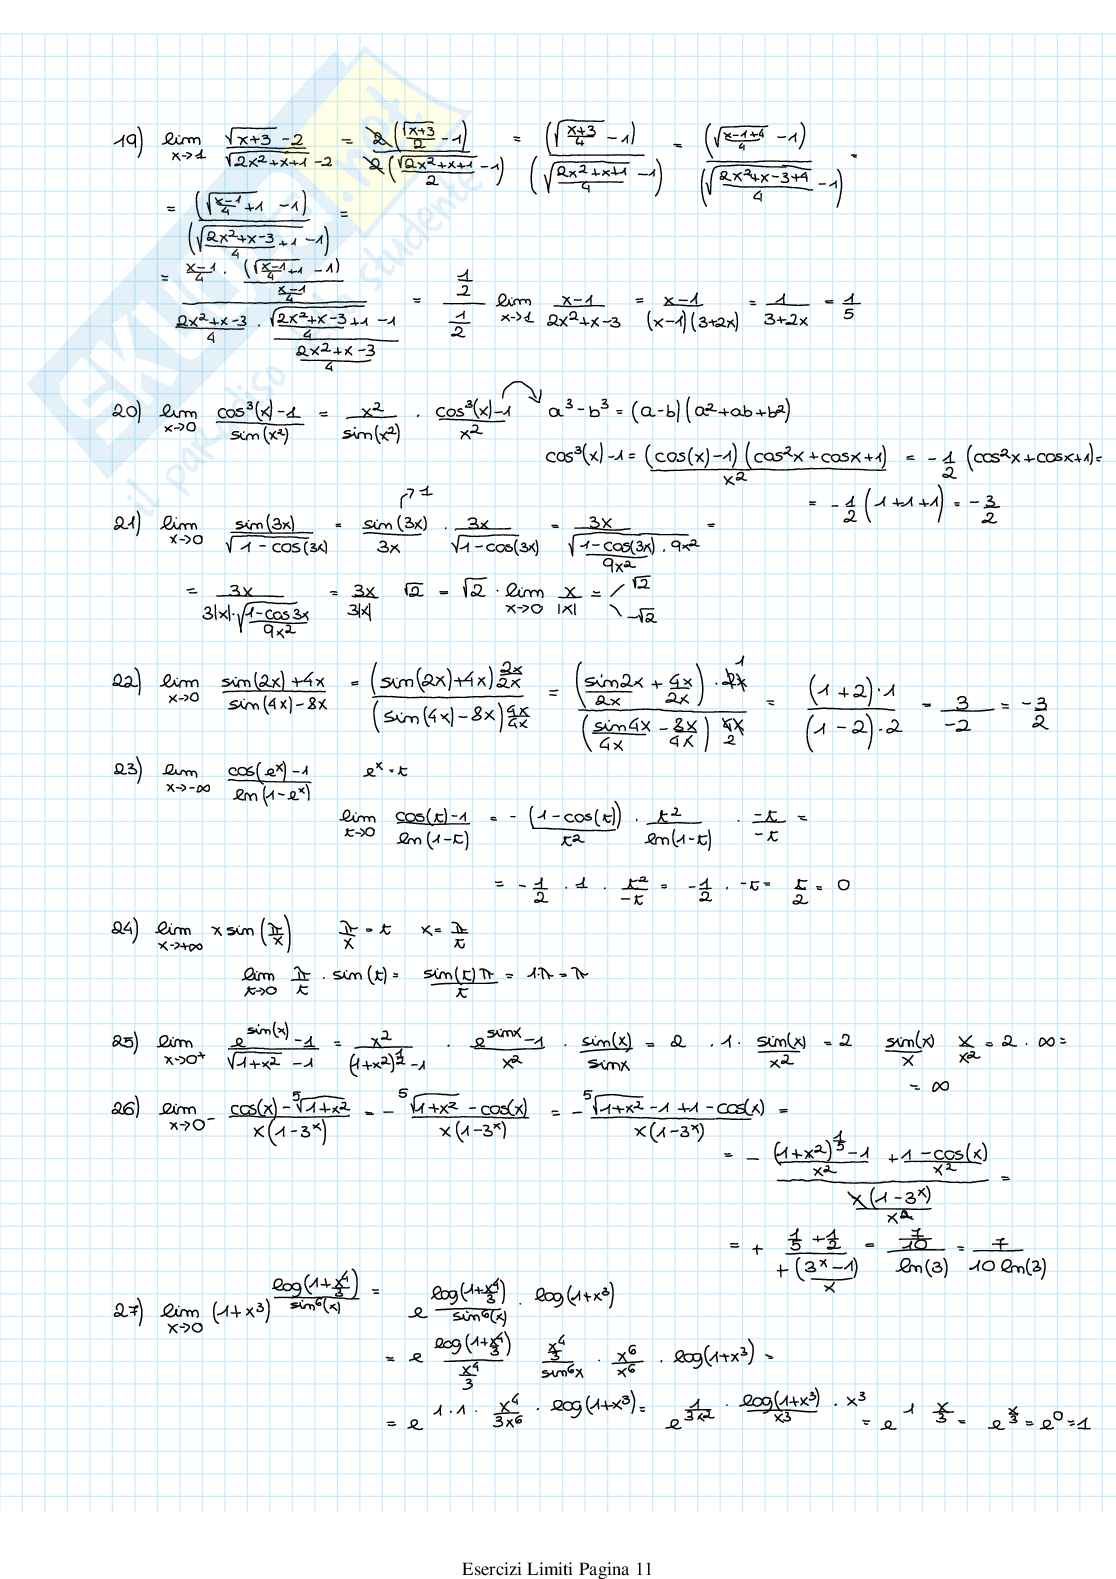 19) lim x→1 (√(x+3) -2)/(√(2x²+x+1) -2) = (2(√(x+3)/2 -1))/(2(√(2x²+x+1)/2 -1)) = (√((x+3)/4) -1)/(√((2x²+x+1)/4) -1) = (√((x-1+4)/4) -1)/(√((2x²+x-3+4)/4) -1) =
= (√((x-1)/4 +1) -1)/(√((2x²+x-3)/4 +1) -1) =
= ((x-1)/4 · (√((x-1)/4 +1) -1)/((x-1)/4))/((2x²+x-3)/4 · (√((2x²+x-3)/4 +1) -1)/((2x²+x-3)/4)) = (1/2)/(1/2) lim x→1 (x-1)/(2x²+x-3) = (x-1)/((x-1)(3+2x)) = 1/(3+2x) = 1/5
20) lim x→0 (cos³(x)-1)/(sin(x²)) = x²/sin(x²) · (cos³(x)-1)/x² a³-b³ = (a-b)(a²+ab+b²)
cos³(x)-1 = ((cos(x)-1)(cos²x+cosx+1))/x² = -1/2 (cos²x+cosx+1) =
= -1/2 (1+1+1) = -3/2
21) lim x→0 sin(3x)/√(1-cos(3x)) = sin(3x)/3x →1 · 3x/√(1-cos(3x)) = 3x/√((1-cos(3x))/9x² · 9x²) =
= 3x/(3|x|·√((1-cos3x)/9x²)) = 3x/3|x| √2 = √2 · lim x→0 x/|x| = √2 -√2
22) lim x→0 (sin(2x)+4x)/(sin(4x)-8x) = ((sin(2x)+4x) 2x/2x)/((sin(4x)-8x) 4x/4x) = ((sin2x/2x + 4x/2x) · 2x 1)/((sin4x/4x - 8x/4x) 4x 2) = ((1+2)·1)/((1-2)·2) = 3/-2 = -3/2
23) lim x→-∞ (cos(eˣ)-1)/(ln(1-eˣ)) eˣ = t
lim t→0 (cos(t)-1)/(ln(1-t)) = - (1-cos(t))/t² · t²/ln(1-t) · -t/-t =
= -1/2 · 1 · t²/-t = -1/2 · -t = t/2 = 0
24) lim x→+∞ x sin(π/x) π/x = t x = π/t
lim t→0 π/t · sin(t) = sin(t)π/t = 1·π = π
25) lim x→0⁺ (e^sin(x) -1)/(√(1+x²) -1) = x²/((1+x²)^(1/2) -1) · (e^sinx -1)/x² · sin(x)/sinx = 2 · 1 · sin(x)/x² = 2 sin(x)/x x/x² = 2 · ∞ =
= ∞
26) lim x→0⁻ (cos(x) - ⁵√(1+x²))/(x(1-3ˣ)) = - (⁵√(1+x²) - cos(x))/(x(1-3ˣ)) = - (⁵√(1+x²) -1+1-cos(x))/(x(1-3ˣ)) =
= - (((1+x²)^(1/5) -1)/x² + (1-cos(x))/x²)/(x(1-3ˣ)/x²) =
= + (1/5 + 1/2)/(+(3ˣ-1)/x) = (7/10)/ln(3) = 7/(10 ln(3))
27) lim x→0 (1+x³)^(log(1+x⁴/3)/sin⁶(x)) = e^(log(1+x⁴/3)/sin⁶(x) · log(1+x³))
= e^(log(1+x⁴/3)/(x⁴/3) (x⁴/3)/sin⁶x · x⁶/x⁶ · log(1+x³)) =
= e^(1·1 · x⁴/3x⁶ · log(1+x³)) = e^(1/3x² · log(1+x³)/x³ · x³) = e^(1 x/3) = e^(x/3) = e⁰ = 1
Esercizi Limiti Pagina 11
SKUOLA.net
il paradiso
studente